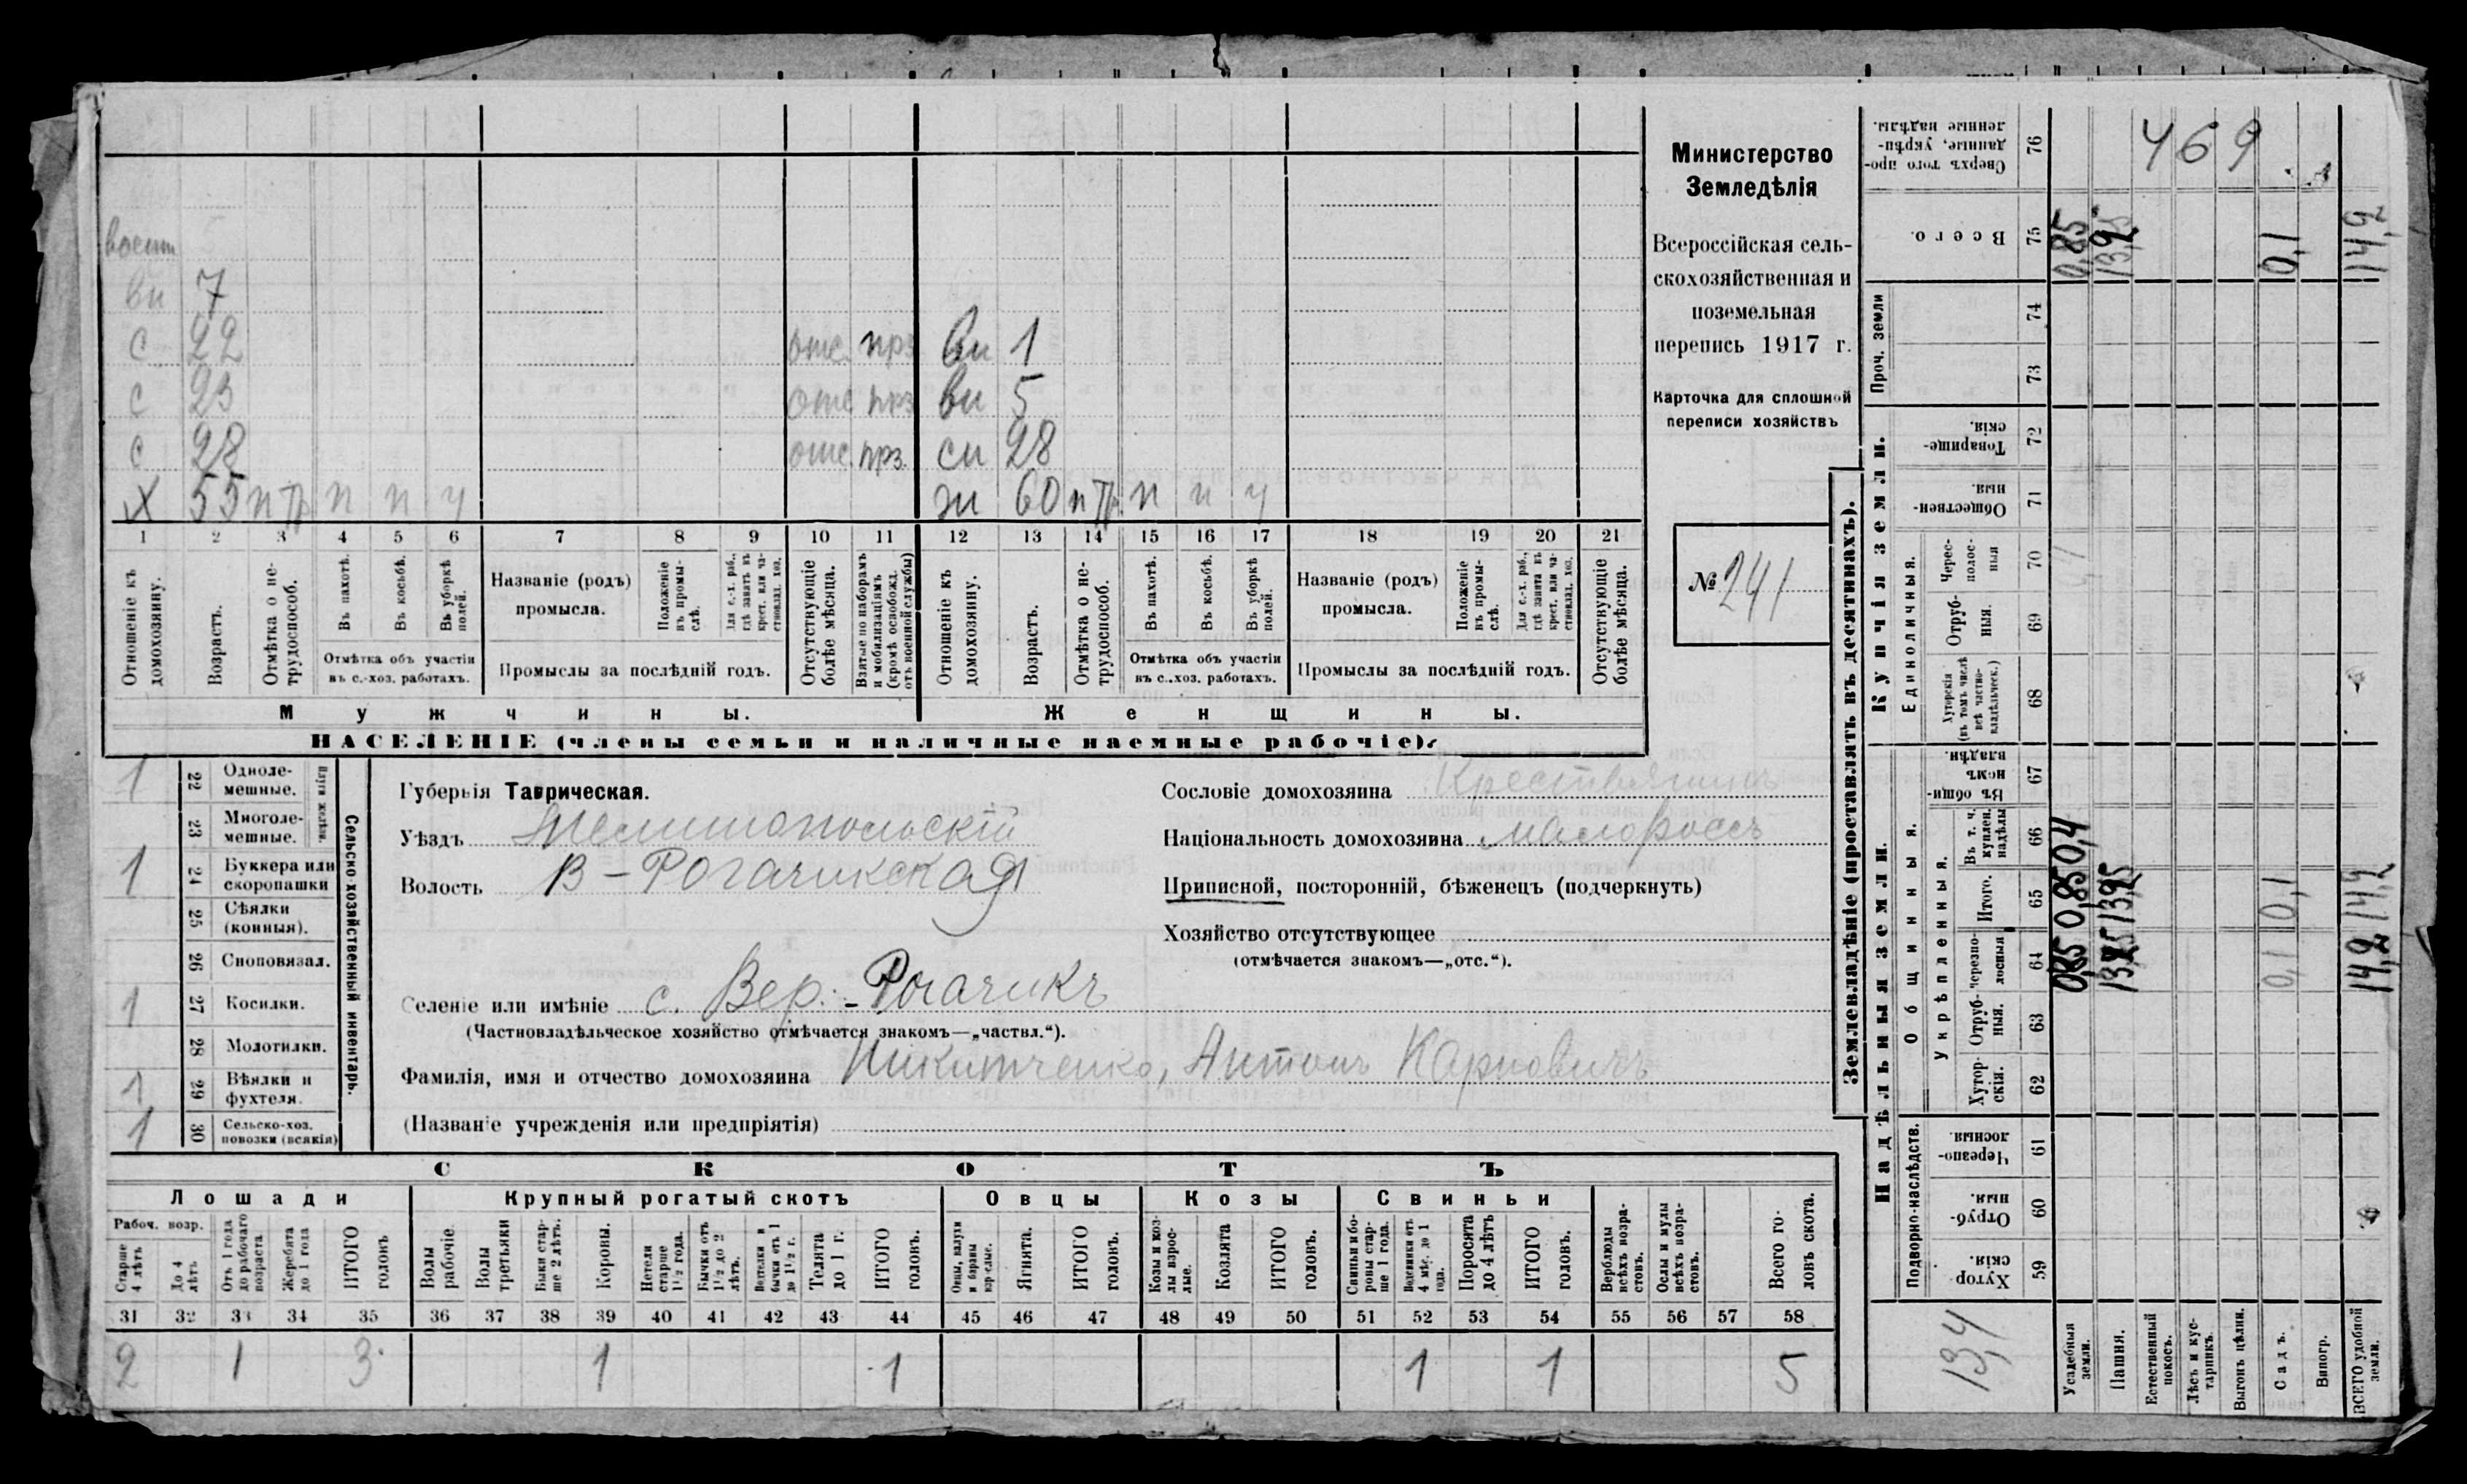 воспи
вн 7
с 22 отс. прз вн 1
с 23 отс прз вн 5
с 28 отс. прз. сн 28
х 55 п тр п п у жн 60 п тр. п п у
1 2 3 4 5 6 7 8 9 10 11 12 13 14 15 16 17 18 19 20 21
Отношеніе къ домохозяину.
Возрастъ.
Отмѣтка о не-
трудоспособ.
Въ пахотѣ.
Въ косьбѣ.
Въ уборкѣ
полей.
Отмѣтка объ участіи
въ с.-хоз. работахъ.
Названіе (родъ)
промысла.
Положеніе
въ промы-
слѣ.
Для с.-х. раб.,
гдѣ занятъ въ
крест. или ча-
стновлад. хоз.
Промыслы за послѣдній годъ.
Отсутствующіе
болѣе мѣсяца.
Взятые по наборамъ
и мобилизаціямъ
(кромѣ освобожд.
отъ военной службы)
Отношеніе къ
домохозяину.
Возрастъ.
Отмѣтка о не-
трудоспособ.
Въ пахотѣ.
Въ косьбѣ.
Въ уборкѣ
полей.
Отмѣтка объ участіи
въ с.-хоз. работахъ.
Названіе (родъ)
промысла.
Положеніе
въ промы-
слѣ.
Для с.-х. раб.,
гдѣ занята въ
крест. или ча-
стновлад. хоз.
Промыслы за послѣдній годъ.
Отсутствующіе
болѣе мѣсяца.
Мужчины. Женщины.
НАСЕЛЕНІЕ (члены семьи и наличные наемные рабочіе).
Министерство
Земледѣлія
Всероссійская сель-
скохозяйственная и
поземельная
перепись 1917 г.
Карточка для сплошной
переписи хозяйствъ
№ 241
Сельско-хозяйственный инвентарь.
Плуги желѣзн.
1 22 Одноле-
мешные.
23 Многоле-
мешные.
1 24 Буккера или
скоропашки
25 Сѣялки
(конныя).
26 Сноповязал.
1 27 Косилки.
28 Молотилки.
1 29 Вѣялки и
фухтеля.
1 30 Сельско-хоз.
повозки (всякія)
Губернія Таврическая.
Уѣздъ Мелитопольскій
Волость В-Рогачикская
Селеніе или имѣніе с. Вер.-Рогачикъ
(Частновладѣльческое хозяйство отмѣчается знакомъ—„частвл.“).
Фамилія, имя и отчество домохозяина Никитченко, Антонъ Карповичъ
(Названіе учрежденія или предпріятія)
Сословіе домохозяина Крестьянинъ
Національность домохозяина малороссъ
Приписной, посторонній, бѣженецъ (подчеркнуть)
Хозяйство отсутствующее
(отмѣчается знакомъ—„отс.“).
СКОТЪ
Лошади Крупный рогатый скотъ Овцы Козы Свиньи
Рабоч. возр.
Старше
4 лѣтъ
До 4
лѣтъ
Отъ 1 года
до рабочаго
возраста
Жеребята
до 1 года
ИТОГО
головъ
Волы
рабочіе
Волы
третьяки
Быки стар-
ше 2 лѣтъ.
Коровы.
Нетели
старше
1½ года.
Бычки отъ
1½ до 2
лѣтъ.
Нетелки и
бычки отъ 1
до 1½ г.
Телята
до 1 г.
ИТОГО
головъ.
Овцы, валухи
и бараны
взрослые.
Ягнята.
ИТОГО
головъ.
Козы и коз-
лы взрос-
лые.
Козлята
ИТОГО
головъ.
Свиньи и бо-
ровы стар-
ше 1 года.
Подсвинки отъ
4 мѣс. до 1
года.
Поросята
до 4 лѣтъ
ИТОГО
головъ.
Верблюды
всѣхъ возра-
стовъ.
Ослы и мулы
всѣхъ возра-
стовъ.
Всего го-
ловъ скота.
31 32 33 34 35 36 37 38 39 40 41 42 43 44 45 46 47 48 49 50 51 52 53 54 55 56 57 58
2 1 3 1 1 1 1 5
Землевладѣніе (проставлять въ десятинахъ).
Надѣльныя земли. Купчія земли. Проч. земли
Подворно-наслѣдств. Общинныя. Единоличныя.
Укрѣпленныя.
Хутор-
скія.
59
Отруб-
ныя.
60
Черезпо-
лосныя.
61
Хутор-
скія.
62
Отруб-
ныя.
63
Черезпо-
лосныя
64
Итого.
65
Въ т. ч.
куплен.
надѣлы
66
Въ общи-
номъ
владѣн.
67
Хуторскія
(въ томъ числѣ
всѣ частно-
владѣльчек.)
68
Отруб-
ныя.
69
Черес-
полос-
ныя
70
Обществен-
ныя.
71
Товарище-
скія.
72
73
74
Всего.
75
Сверхъ того про-
данные, укрѣп-
ленные надѣлы.
76
13,4
Усадебныя
земли.
0,85 0,85 0,4 0,85
Пашня.
13,25 13,25 13,25
Естественный
покосъ.
Лѣсъ и кус-
тарникъ.
Выгонъ цѣлин.
Садъ.
0,1 0,1 0,1
Виногр.
ВСЕГО удобной
земли.
14,2 14,2 14,2
469